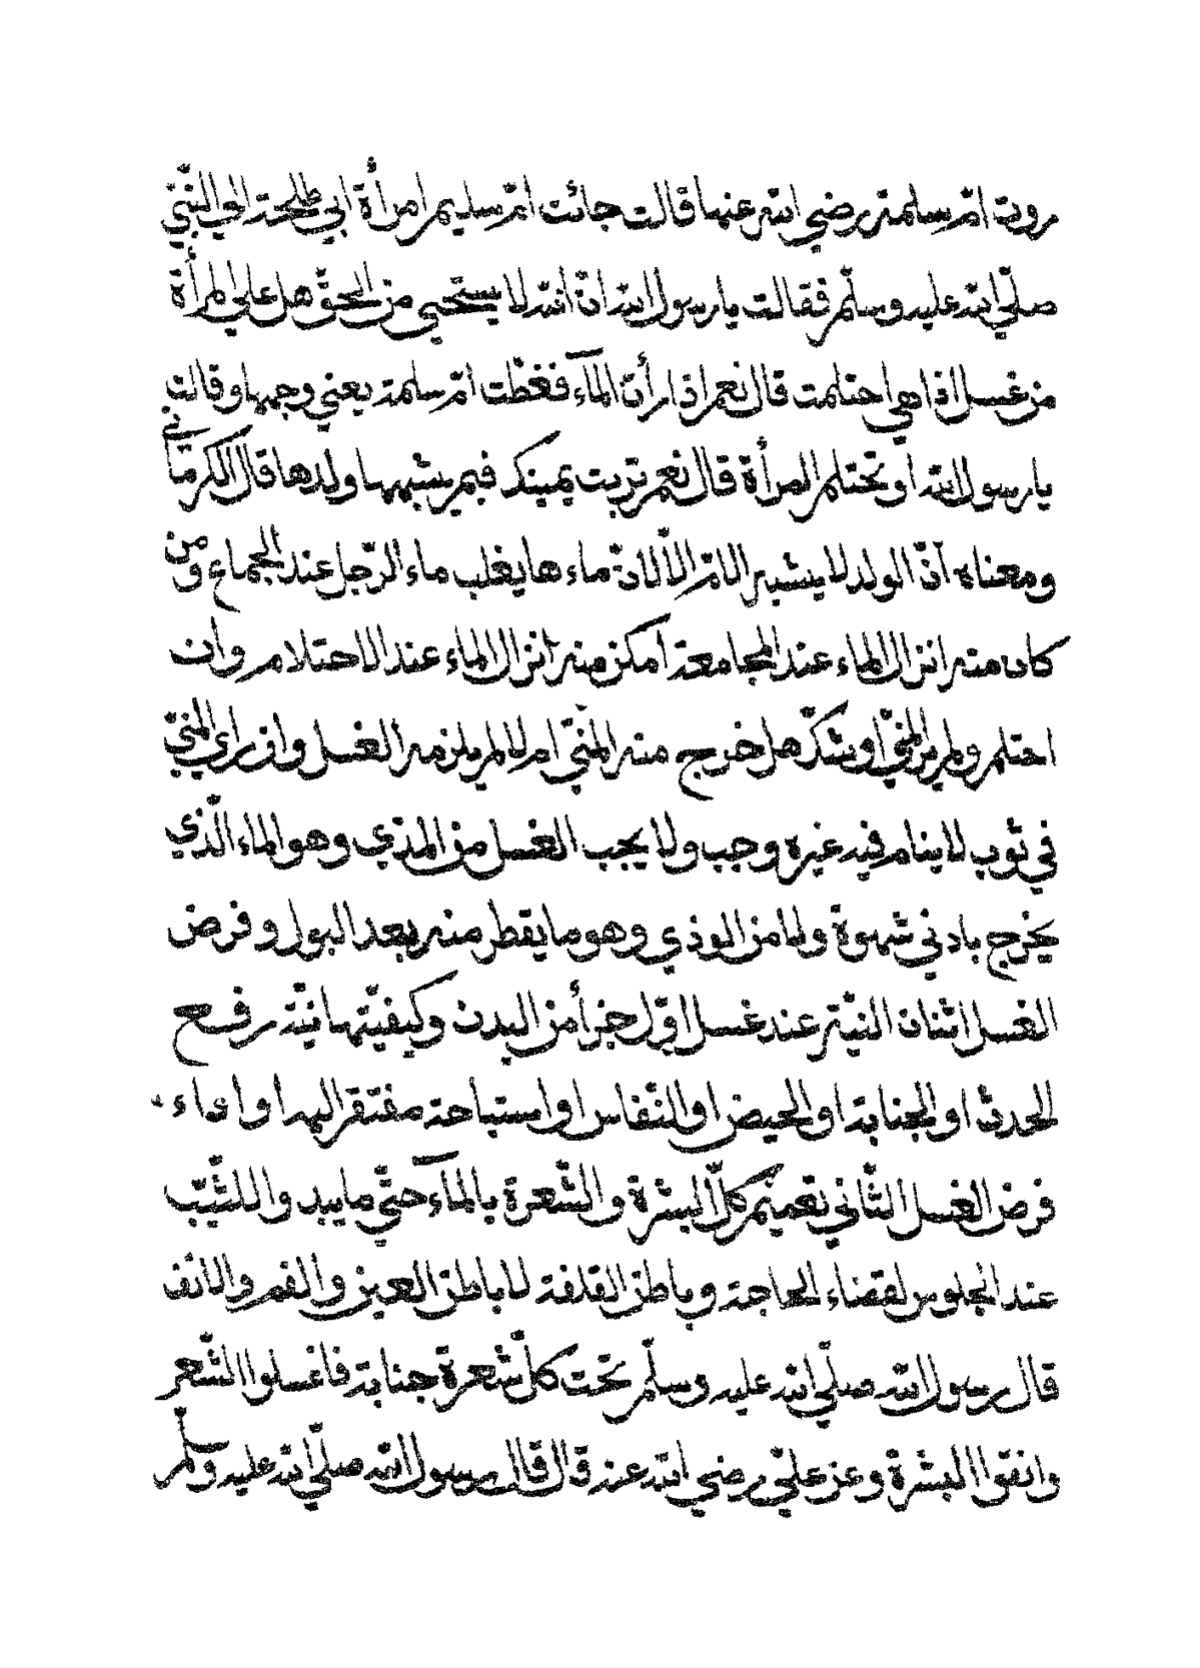 روت امّ سلمة رضي الله عنها قالت جائت امّ سليم امرأة ابي طلحة الي النّبيّ
صلّي الله عليه وسلّم فقالت يا رسول الله انّ الله لا يستحيي من الحقّ هل علي المرأة
من غسل اذا هي احتلمت قال نعم اذا رأت المآء فغطّت امّ سلمة يعني وجهها وقالت
يا رسول الله أو تحتلم المرأة قال نعم تربت يمينك فبم يشبهها ولدها قال الكرمانّي
ومعناه أنّ الولد لا يشبه الامّ الّا لانّ ماءها يغلب ماء الرّجل عند الجماع ومن
كان منه انزال الماء عند المجامعة أمكن منه انزال الماء عند الاحتلام وان
احتلم ولم ير المنيّ اوشكّ هل خرج منه المنيّ ام لا لم يلزمه الغسل وان راي المنيّ
في ثوب لا ينام فيه غيره وجب ولا يجب الغسل من المذي وهو الماء الّذي
يخرج بادني شهوة ولا من الوذي وهو ما يقطر منه بعد البول وفرض
الغسل اثنان النيّة عند غسل اوّل جزأ من البدن وكيفيّتها نيّة رفع
الحدث او الجنابة او الحيض او النّفاس او استباحة مفتقر اليها او اداء
فرض الغسل الثّاني تعميم كلّ البشرة والشّعرة بالمآء حتّي ما يبدو اللثيّب
عند الجلوس لقضاء الحاجة وباطن القلفة لا باطن العين والفم والانف
قال رسول الله صلّي الله عليه وسلّم تحت كلّ شعرة جنابة فاغسلوا الشّعر
وانقوا البشرة وعن عليّ رضي الله عنه قال قال رسول الله صلّي الله عليه وسلّم